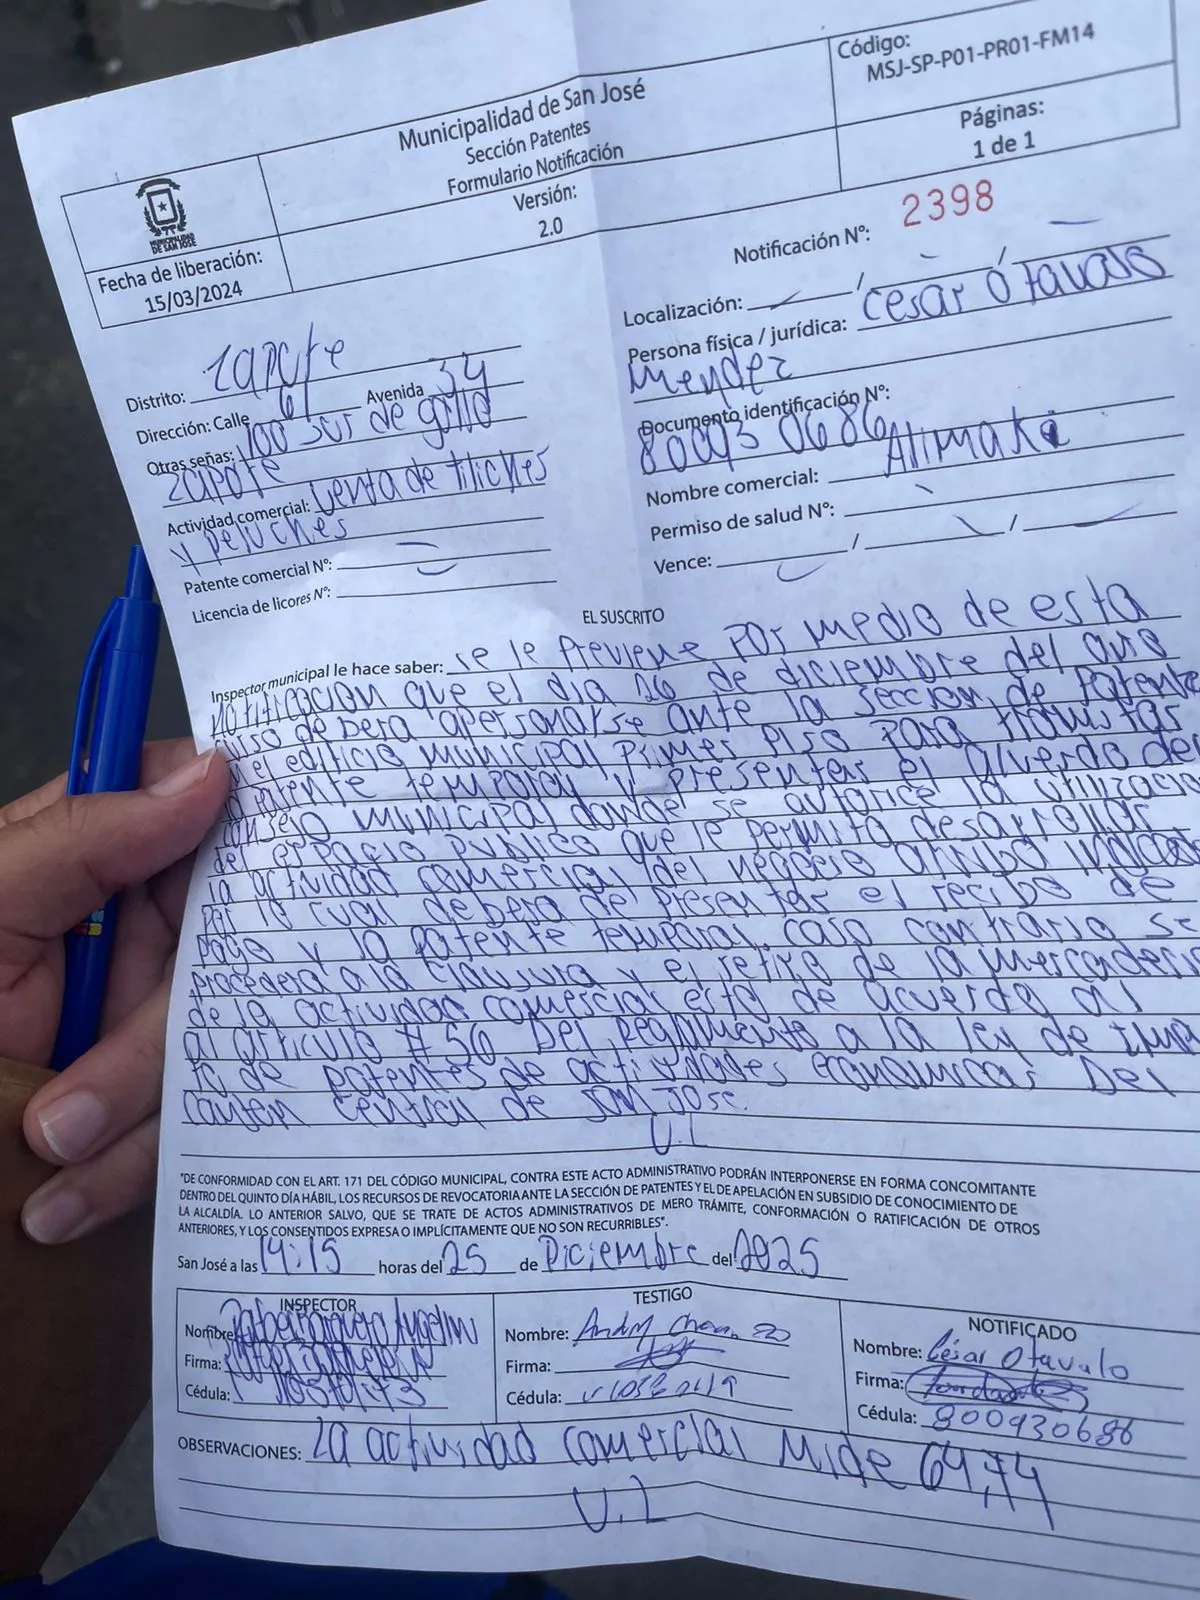 Municipalidad de San José
Sección Patentes
Formulario Notificación
Código:
MSJ-SP-P01-PR01-FM14
MUNICIPALIDAD
DE SAN JOSÉ
Fecha de liberación:
15/03/2024
Versión:
2.0
Páginas:
1 de 1
Notificación Nº: 2398
Localización: / /
Persona física / jurídica: Cesar Otavalo
Mendez
Documento identificación Nº:
800930686
Nombre comercial: Alimaki
Permiso de salud Nº:
Vence: / /
Distrito: Zapote
Dirección: Calle 61 Avenida 34
Otras señas: 100 sur de gollo
Zapote
Actividad comercial: Venta de tiliches
y peluches
Patente comercial Nº:
Licencia de licores Nº:
EL SUSCRITO
Inspector municipal le hace saber: se le previene por medio de esta
notificacion que el dia 26 de diciembre del año
curso debera apersonarse ante la seccion de patente
en el edificio municipal primer piso para tramitar
patente temporal y presentar el acuerdo del
consejo municipal donde se autorice la utilizacio
del espacio publico que le permita desarrollar
la actividad comercial del negocio arriba indicado
por lo cual debera de presentar el recibo de
pago y la patente temporal, caso contrario se
procedera a la clausura y el retiro de la mercaderia
de la actividad comercial esto de acuerdo al
al articulo #56 Del Reglamento a la ley de
de patentes de actividades economicas Del
Canton Central de San Jose.
U.L
"DE CONFORMIDAD CON EL ART. 171 DEL CÓDIGO MUNICIPAL, CONTRA ESTE ACTO ADMINISTRATIVO PODRÁN INTERPONERSE EN FORMA CONCOMITANTE
DENTRO DEL QUINTO DÍA HÁBIL, LOS RECURSOS DE REVOCATORIA ANTE LA SECCIÓN DE PATENTES Y EL DE APELACIÓN EN SUBSIDIO DE CONOCIMIENTO DE
LA ALCALDÍA. LO ANTERIOR SALVO, QUE SE TRATE DE ACTOS ADMINISTRATIVOS DE MERO TRÁMITE, CONFORMACIÓN O RATIFICACIÓN DE OTROS
ANTERIORES, Y LOS CONSENTIDOS EXPRESA O IMPLÍCITAMENTE QUE NO SON RECURRIBLES".
San José a las 14:15 horas del 25 de Diciembre del 2025
INSPECTOR
Nombre:
Firma:
Cédula:
TESTIGO
Nombre:
Firma:
Cédula:
NOTIFICADO
Nombre: César Otavalo
Firma:
Cédula: 800930686
OBSERVACIONES: La actividad comercial Mide 64,74
U.L